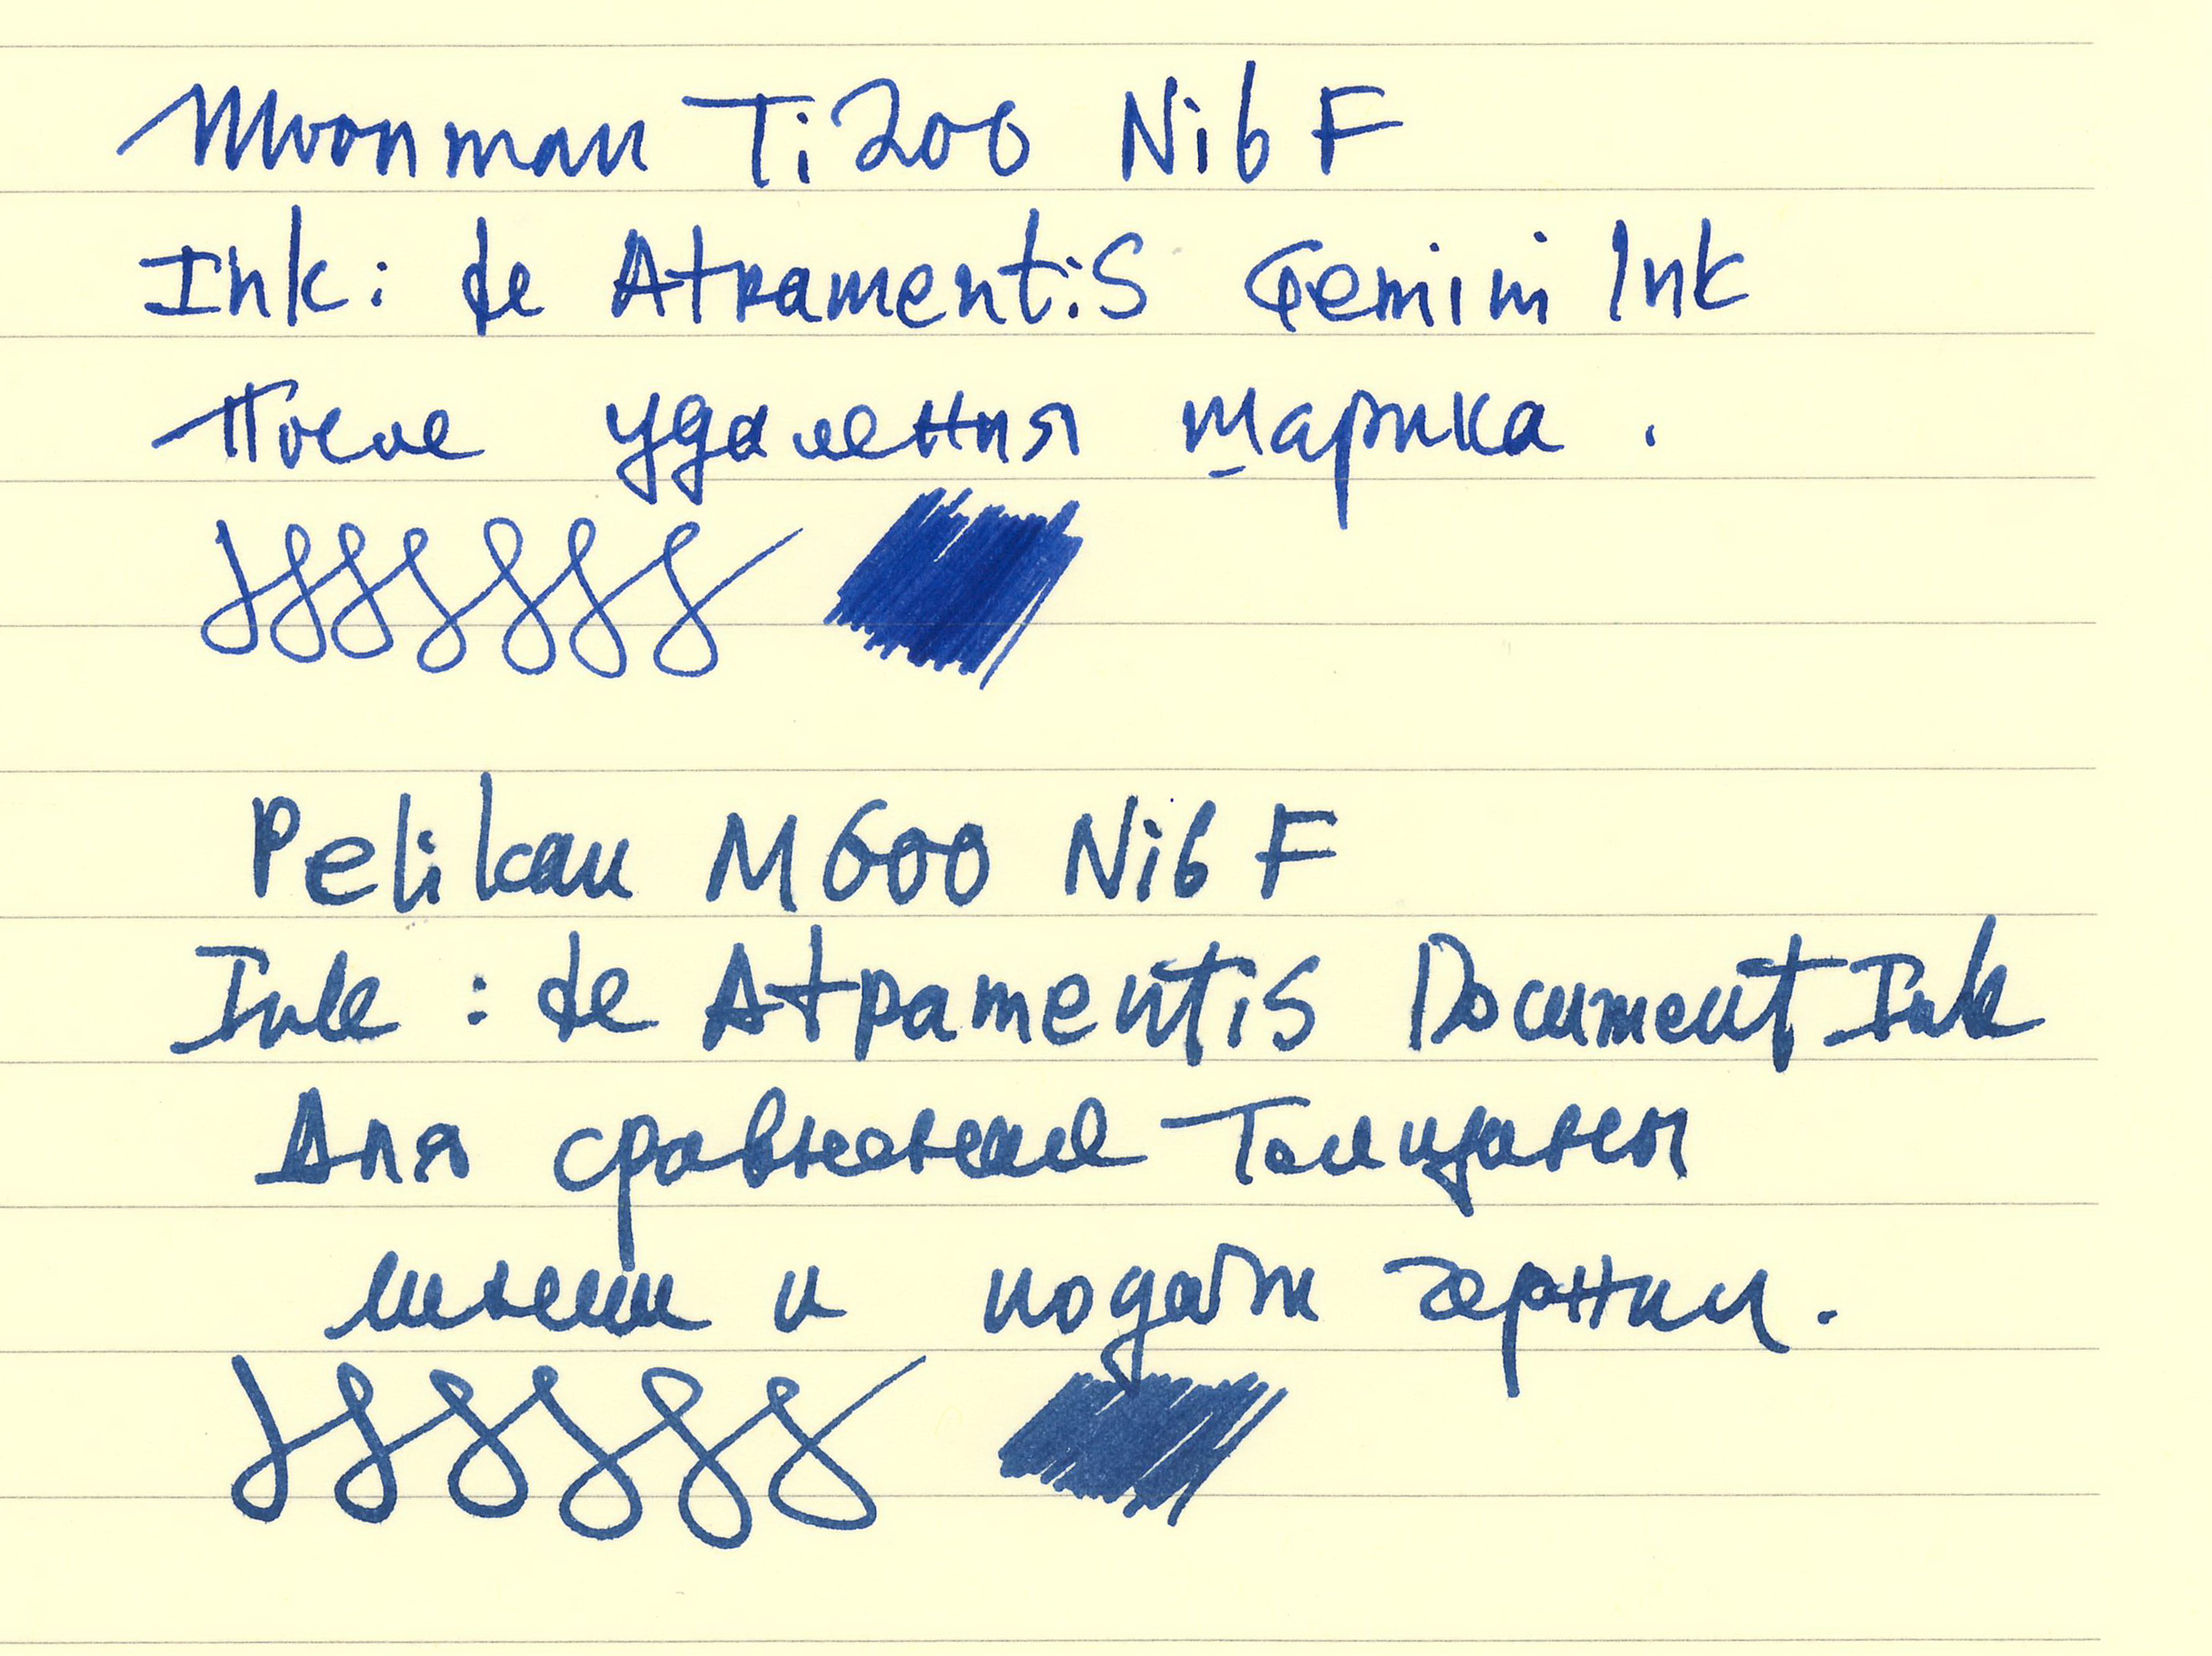 Moonman Ti200 Nib F
Ink: de Atramentis Gemini Ink
После удаления шарика.
Pelikan M600 Nib F
Ink : de Atраmentis Document Ink
Для сравнения толщины
линии и подачи чернил.